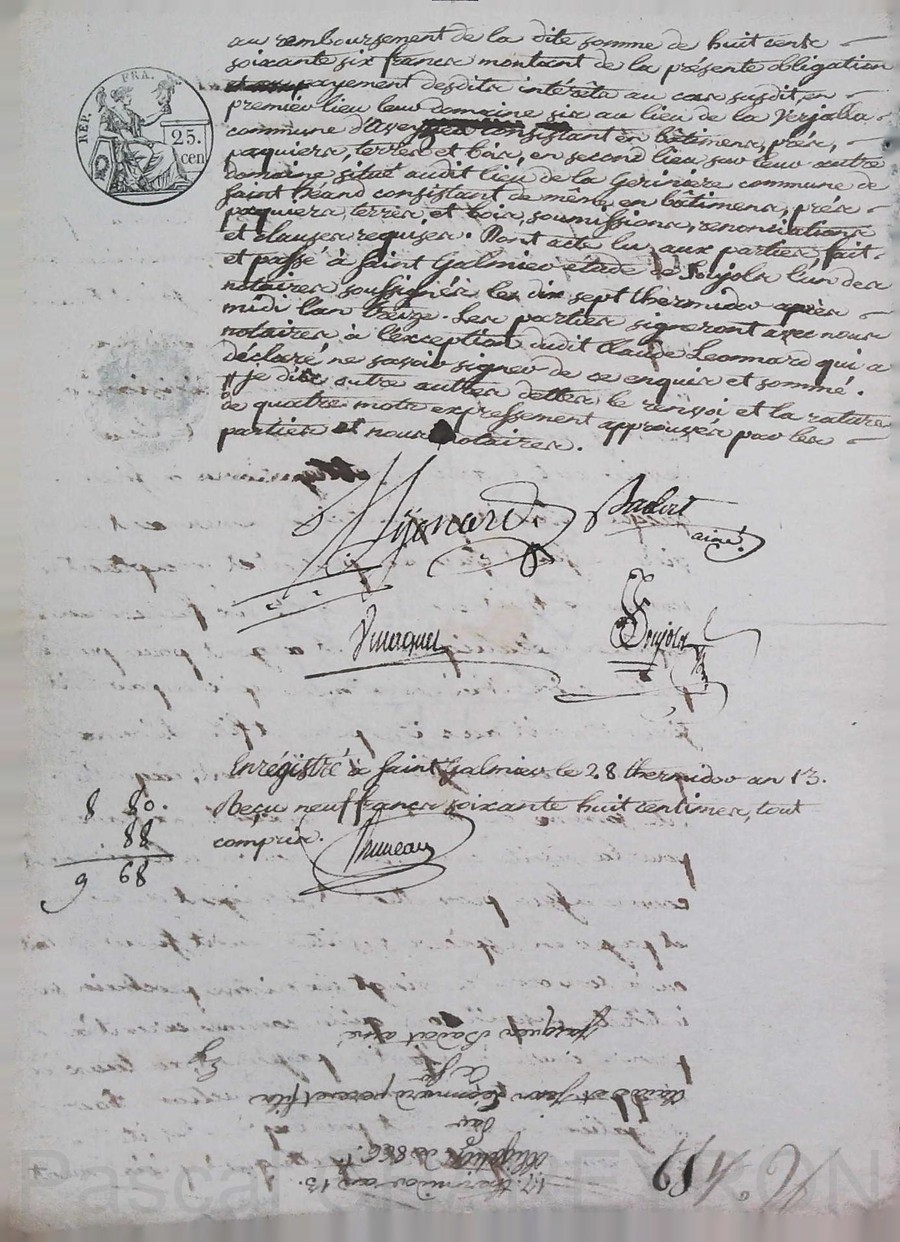 au remboursement de la dite somme de huit cents
soixante six francs montant de la présente obligation
payement desdits intérêts au cas susdit, en
premier lieu leur domaine sis au lieu de la Verjolla
commune d'Aveyzea consistant en bâtimens, prés,
paquiers, terres et bois, en second lieu sur leur autre
domaine situé audit lieu de la commune de
Saint héand consistant de même en bâtimens, prés
paquiers, terres et bois, soumissions, renonciations
et clauses requises. Dont acte lu aux parties, fait
et passé à Saint Galmier étude de Soujols l'un des
notaires soussignés, le dix sept thermidor après
midi l'an treize. Les parties signeront avec nous
notaires à l'exception dudit Claude Leonnard qui a
déclaré ne savoir signer de ce enquis et sommé.
// je dis autre autres dettes, le renvoi et la rature
de quatre mots expressement approuvés par les
parties et nous notaires.
Badoit
ainé.
Soujols
Enrégistré à Saint Galmier le 28 thermidor an 13.
8 80. Reçu neuf francs soixante huit centimes, tout
88 compris.
9 68
Bruneau
17. thermidor an 13.
obligation de 866.
par
Claude et Jean Léonnard pere et fils
a Sr
Jacques Badoit ainé
REP. FRA.
25.
cen
Pascal CHAMBEYRON